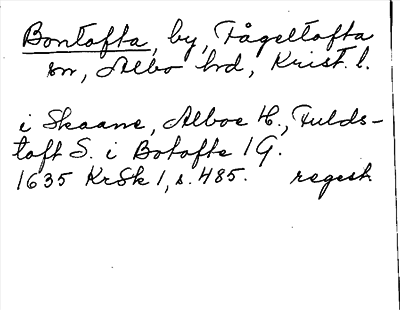 Bontofta, by, Fågeltofta
sn, Albo hd, Krist. l.
i Skaane, Alboe H., Fulds-
toft S. i Botofte 1 G.
1635 KrSk 1, s. 485. regest